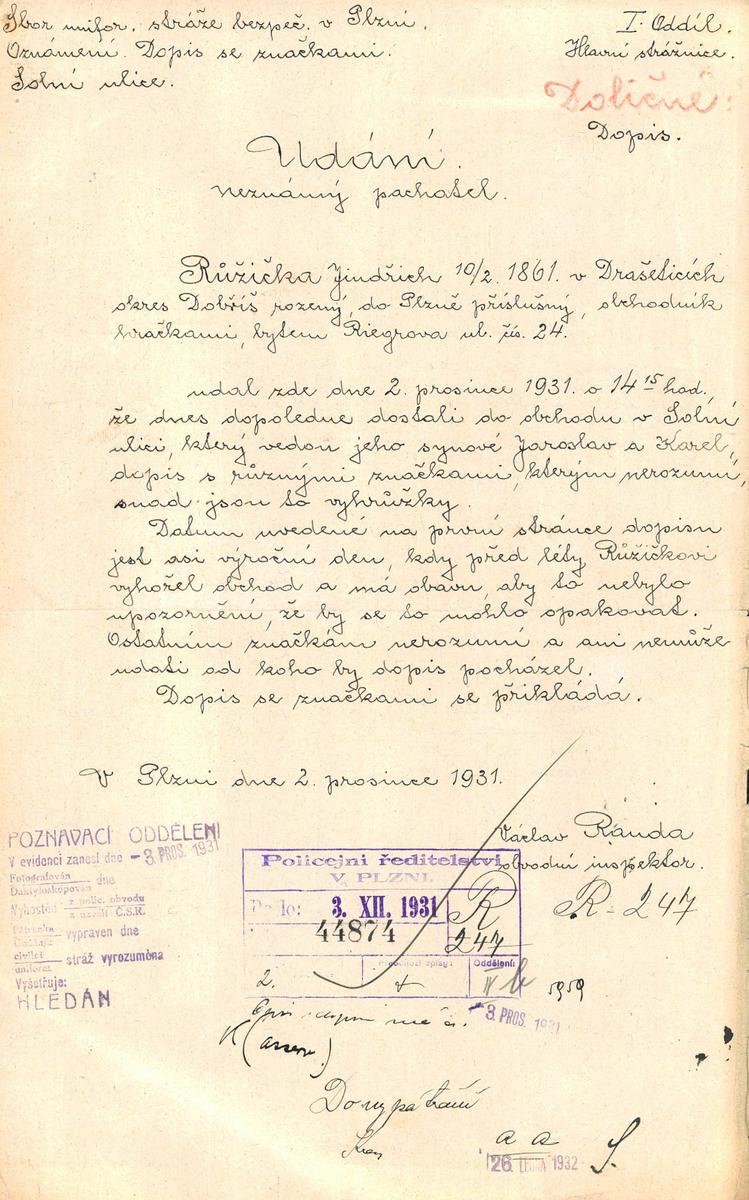 Sbor unifor. stráže bezpeč. v Plzni.
I. Oddíl.
Oznámení. Dopis se značkami.
Hlavní strážnice.
Solní ulice.
Doličné:
Dopis.
Udání.
neznámý pachatel.
Růžička Jindřich 10/2. 1861. v Drašeticích
okres Dobříš rozený, do Plzně příslušný, obchodník
hračkami, bytem Riegrova ul. čís. 24.
udal zde dne 2. prosince 1931. o 14 15 hod.,
že dnes dopoledne dostali do obchodu v Solní
ulici, který vedou jeho synové Jaroslav a Karel,
dopis s různými značkami, kterým nerozumí,
snad jsou to vyhrůžky.
Datum uvedené na první stránce dopisu
jest asi výroční den, kdy před léty Růžičkovi
vyhořel obchod a má obavu, aby to nebylo
upozornění, že by se to mohlo opakovat.
Ostatním značkám nerozumí a ani nemůže
udati od koho by dopis pocházel.
Dopis se značkami se přikládá.
V Plzni dne 2. prosince 1931.
Václav Randa
obvodní inspektor.
R - 247
POZNÁVACÍ ODDĚLENÍ
V evidenci zanesl dne - 3. PROS. 1931
Fotografován
Daktyloskopován dne
Vyhoštěn z polic. obvodu
z území Č.S.R.
vypraven dne
civilní
uniform. stráž vyrozuměna
Vyšetřuje:
HLEDÁN
Policejní ředitelství
V PLZNI.
Došlo: 3. XII. 1931
44874
R
247
Oddělení:
2.
IV b
- 3. PROS. 1931
K (asserv.)
Do vypátrání
a a
26. LEDNA 1932